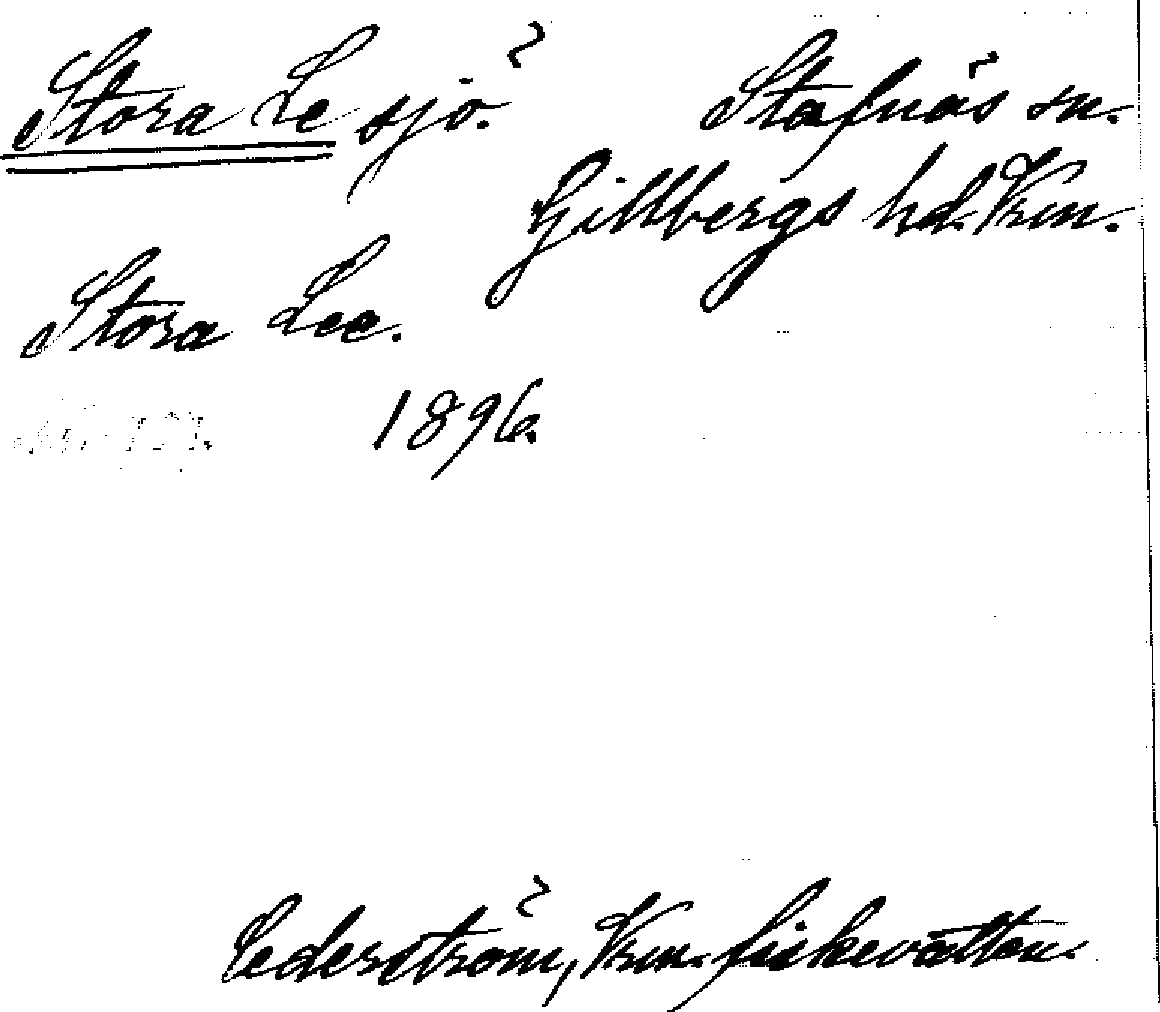 Stora Le sjö. Stafnäs sn.
Gillbergs hd. Vrm.
Stora Lee.
1896.
Cederström, Vrm. fiskevatten.